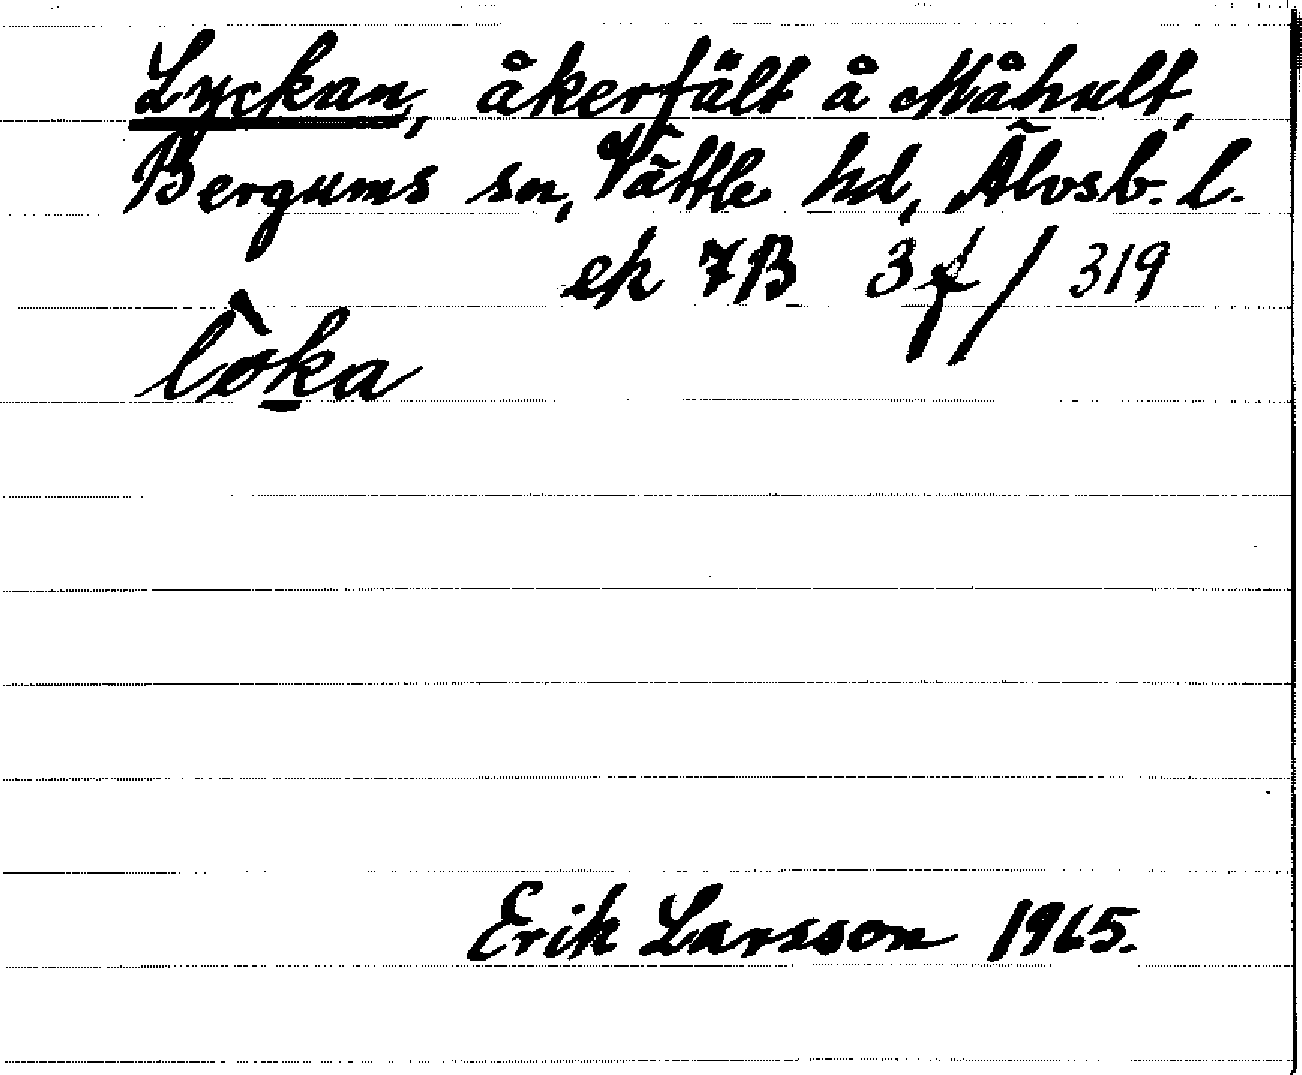 Lyckan, åkerfält å Måhult,
Bergums sn, Vättle hd, Älvsb. l.
ek 7B 3f/319
lòka
Erik Larsson 1965.